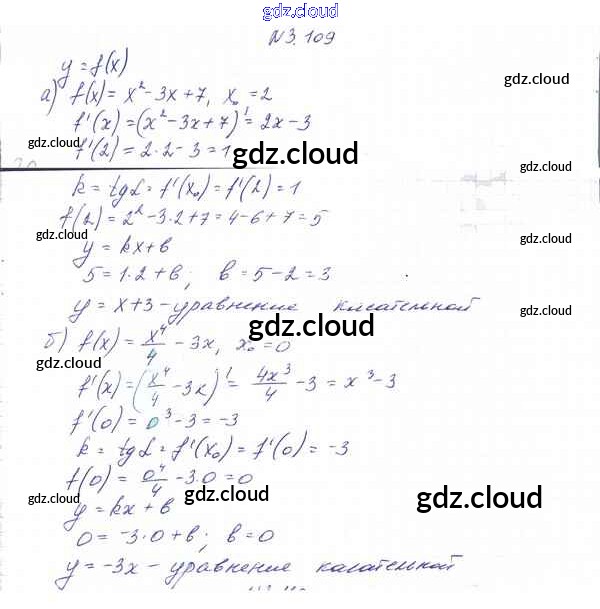 gdz.cloud
N 3.109
y = f(x)
а) f(x) = x² - 3x + 7, x₀ = 2
gdz.cloud
f'(x) = (x² - 3x + 7)' = 2x - 3
gdz.cloud
gdz.cloud
f'(2) = 2·2 - 3 = 1
gdz.cloud
k = tgα = f'(x₀) = f'(2) = 1
gdz.cloud
f(2) = 2² - 3·2 + 7 = 4 - 6 + 7 = 5
gdz.cloud
gdz.cloud
y = kx + b
5 = 1·2 + b; b = 5 - 2 = 3
y = x + 3 - уравнение касательной
gdz.cloud
б) f(x) = x⁴/4 - 3x, x₀ = 0
gdz.cloud
f'(x) = (x⁴/4 - 3x)' = 4x³/4 - 3 = x³ - 3
f'(0) = 0³ - 3 = -3
k = tgα = f'(x₀) = f'(0) = -3
f(0) = 0⁴/4 - 3·0 = 0
gdz.cloud
gdz.cloud
gdz.cloud
y = kx + b
0 = -3·0 + b; b = 0
y = -3x - уравнение касательной